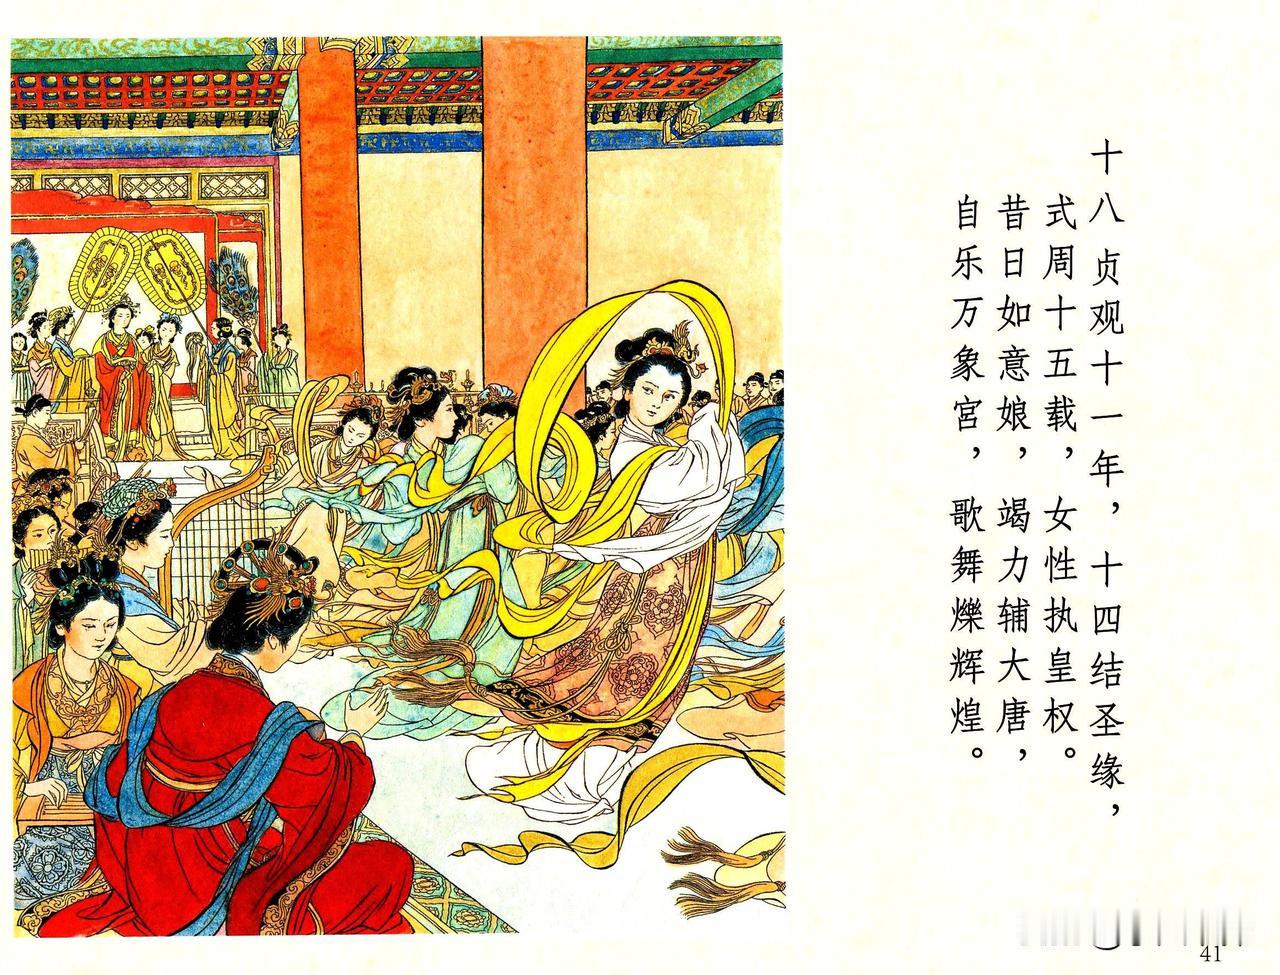 十八 贞观十一年，十四结圣缘，
式周十五载，女性执皇权。
昔日如意娘，竭力辅大唐，
自乐万象宫，歌舞爍辉煌。
41